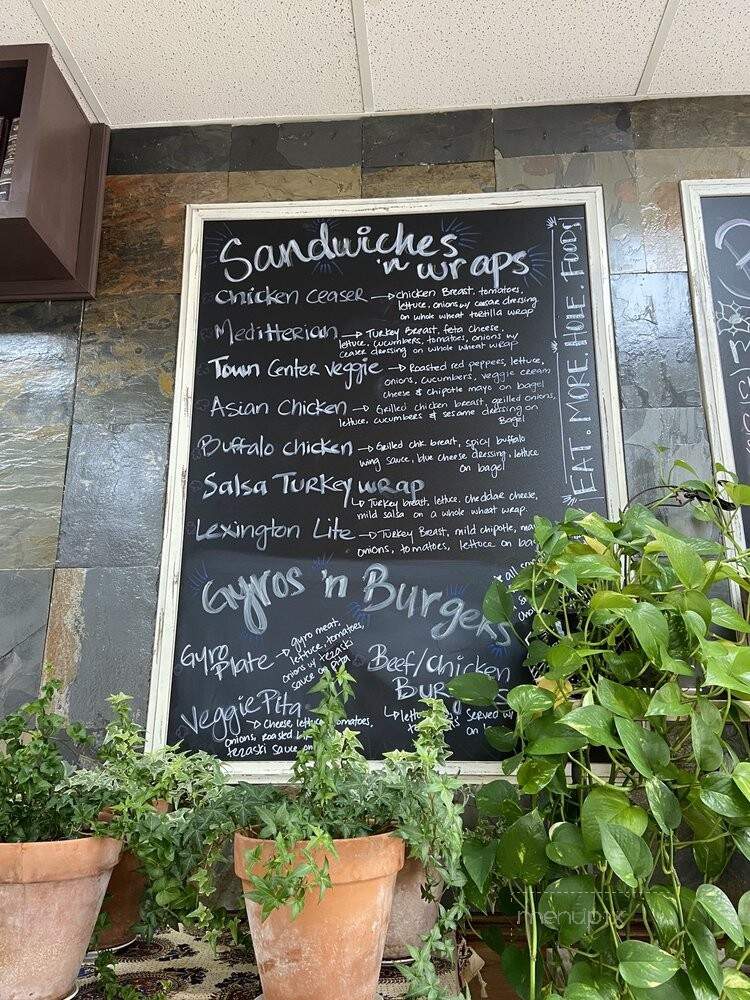 Sandwiches
'n wraps
Chicken Ceaser → chicken Breast, tomatoes,
lettuce, onions w/ caesar dressing
on whole wheat tortilla wrap
Meditterian → Turkey Breast, feta cheese,
lettuce, cucumbers, tomatoes, onions w/
ceaser dressing on whole wheat wrap
Town Center veggie → Roasted red peppers, lettuce,
onions, cucumbers, veggie cream
cheese & chipotle mayo on bagel
Asian Chicken → Grilled chicken breast, grilled onions,
lettuce, cucumbers & sesame dressing on
Bagel
Buffalo chicken → Grilled chk breast, spicy buffalo
wing sauce, blue cheese dressing, lettuce
on bagel
Salsa Turkey wrap
↳ Turkey breast, lettuce, cheddar cheese,
mild salsa on a whole wheat wrap.
Lexington Lite → Turkey Breast, mild chipotle,
onions, tomatoes, lettuce on
EAT. MORE. HOLE. FOOD!
Gyros 'n Burgers
Gyro
Plate → gyro meat,
lettuce, tomatoes,
onions w/ tezaski
sauce on Pita
Veggie Pita
↳ Cheese lettuce tomatoes,
onions, Roasted
tezaski sauce on
Beef/Chicken
Served w/
on
menupix